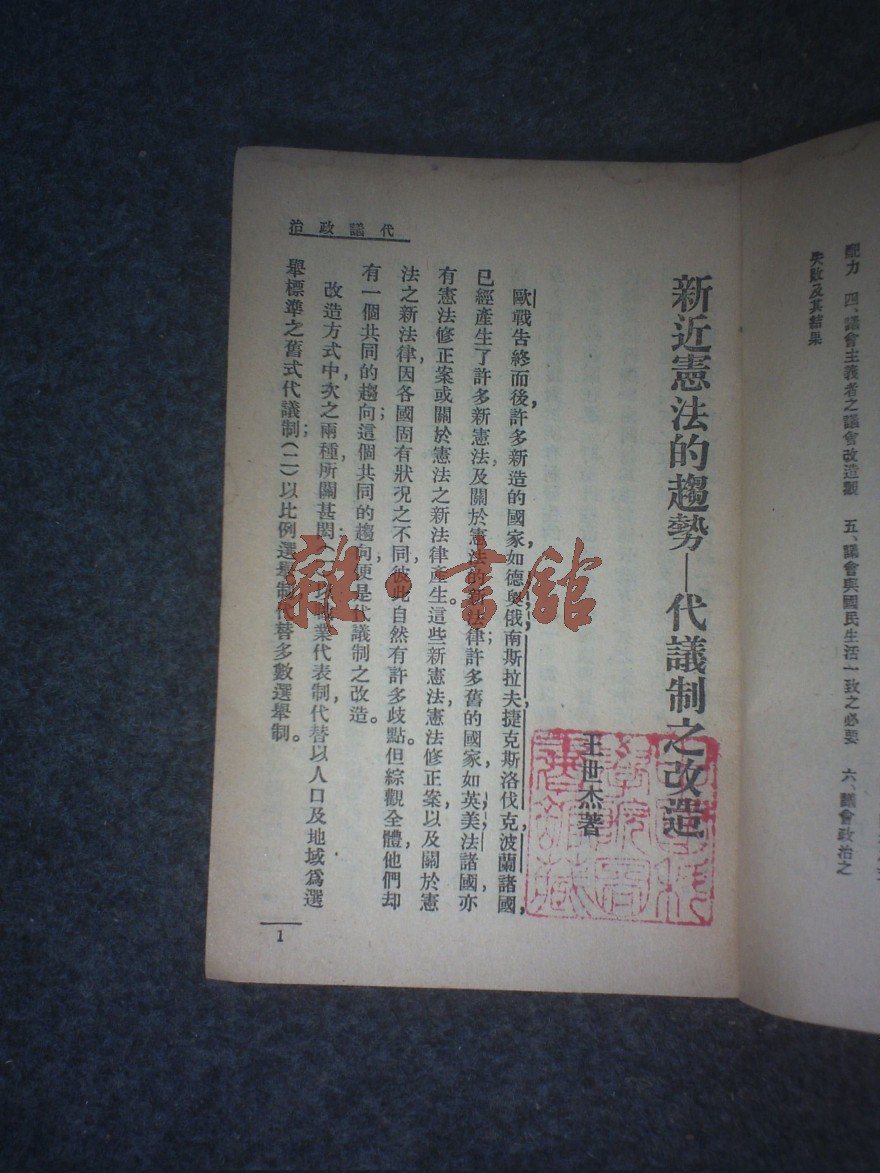 配力　四、議會主義者之議會改造觀　五、議會與國民生活一致之必要　六、議會政治之
失敗及其結果
新近憲法的趨勢—代議制之改造
王世杰著
歐戰告終而後，許多新造的國家如德，奧，俄，南斯拉夫，捷克斯洛伐克，波蘭諸國，
已經產生了許多新憲法及關於憲法的新法律；許多舊的國家如英，美，法諸國，亦
有憲法修正案或關於憲法之新法律產生。這些新憲法，憲法修正案，以及關於憲
法之新法律，因各國固有狀況之不同，彼此自然有許多歧點。但綜觀全體，他們却
有一個共同的趨向；這個共同的趨向，便是代議制之改造。
改造方式中，次之兩種，所關甚閎：(一)以職業代表制，代替以人口及地域爲選
舉標準之舊式代議制；(二)以比例選舉制代替多數選舉制。
代議政治
1
雜·書館